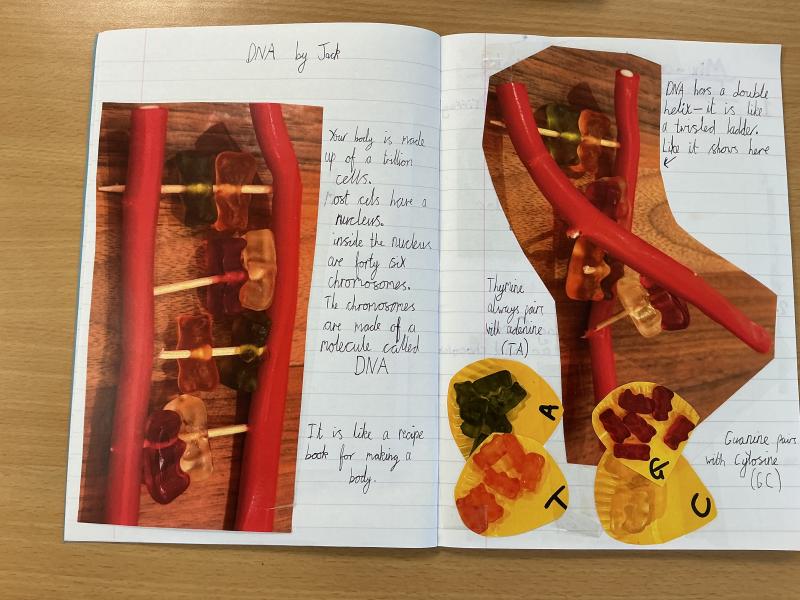 DNA by Jack
Your body is made
up of a trillion
cells.
Most cels have a
nucleus.
inside the nucleus
are forty six
chromosomes.
The chromosomes
are made of a
molecule called
DNA
It is like a recipe
book for making a
body.
DNA has a double
helix – it is like
a twisted ladder.
Like it shows here
Thymine
always pairs
with adenine
(TA)
A
T
G
C
Guanine pairs
with Cytosine
(GC)